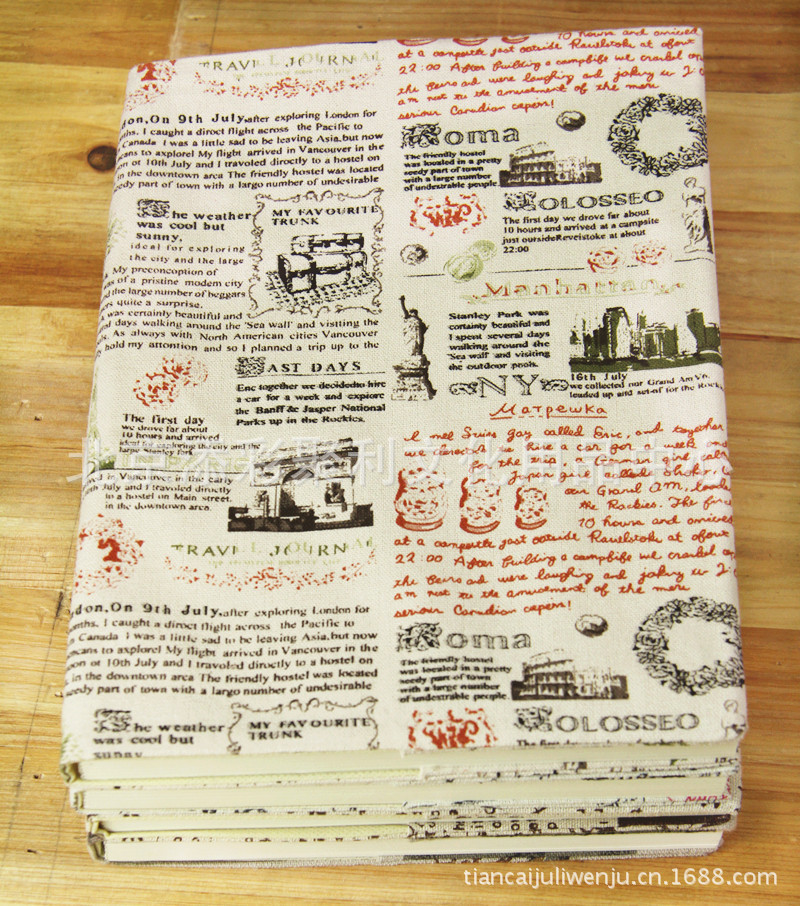 TRAVEL JOURNAL
don,On 9th July,after exploring London for
nths. I caught a diroct flight across the Pacific to
Canada I was a little sad to be leaving Asia.but now
cans to axplorel My flight arrived in Vancouver in the
on ot 10th July and I travoled diroctly to a hostel on
in the downtown area The friendly hostel was located
eedy part of town with a largo number of undesirable
The weather
was cool but
sunny.
ideal for exploring
the city and the large
MY FAVOURITE
TRUNK
My preconcoption of
as of a pristine modem city
d the large number of beggars
ers quite a surprise.
was certainly beautiful and
al days walking around the 'Sea wall' and visiting the
As always with North American cities Vancouver
hold my attontion and so I planned a trip up to the
LAST DAYS
Enc together we decidedto hire
a car for a week and expiore
the Banff & Jasper National
Parks up in the Rockics.
The first day
we drove far about
10 hours and arrived
ideal for exploring the city and the
large Stanley fork
d in Vancouver in the early
th July and I travoled diroctly
to a hostel on Main street.
in the downtown area.
TRAVEL JOURNAL
don,On 9th July,after exploring London for
nths. I caught a diroct flight across the Pacific to
Canada I was a little sad to be leaving Asia.but now
cans to axplorel My flight arrived in Vancouver in the
on ot 10th July and I travoled diroctly to a hostel on
in the downtown area The friendly hostel was located
eedy part of town with a largo number of undesirable
The weather
was cool but
sunny.
MY FAVOURITE
TRUNK
10 hours and arrived
at a campette just outside Ravelstoke at about
22:00 After building a campbife we crarkel
the Beirs ad were laughing and joking w
am not to the amusement of the more
seriour Canadian capers!
Roma
The friendly hostel
was located in a pretty
seedy part of town
with a large number
of undestrable people
COLOSSEO
The first day we drove far about
10 hours and arrived at a campsite
just oursideReveistoke at about
22:00
Manhattan
Stanley Park was
certainty beautiful and
I spent several days
walking around the
'Sea wall' and visiting
the outdoor pools.
16th July
we collected our Grand Am V6.
leaded up and set-of for the Rocki
NY
Матрешка
I mel Sries gay called Eric, and together
we decided to hire a car for a week and
for the trip, a German girl
Japan girl called
our Grand AM, loade
the Rockies. The first
10 hours and arrived
at a campette just outside Ravelstoke at about
22:00 After building a campbife we crarkel
the Beirs ad were laughing and joking w
am not to the amusement of the more
seriour Canadian capers!
Roma
The friendly hostel
was located in a pretty
seedy part of town
with a large number
of undestrable people
COLOSSEO
The first day we drove far about
tiancaijuliwenju.cn.1688.com